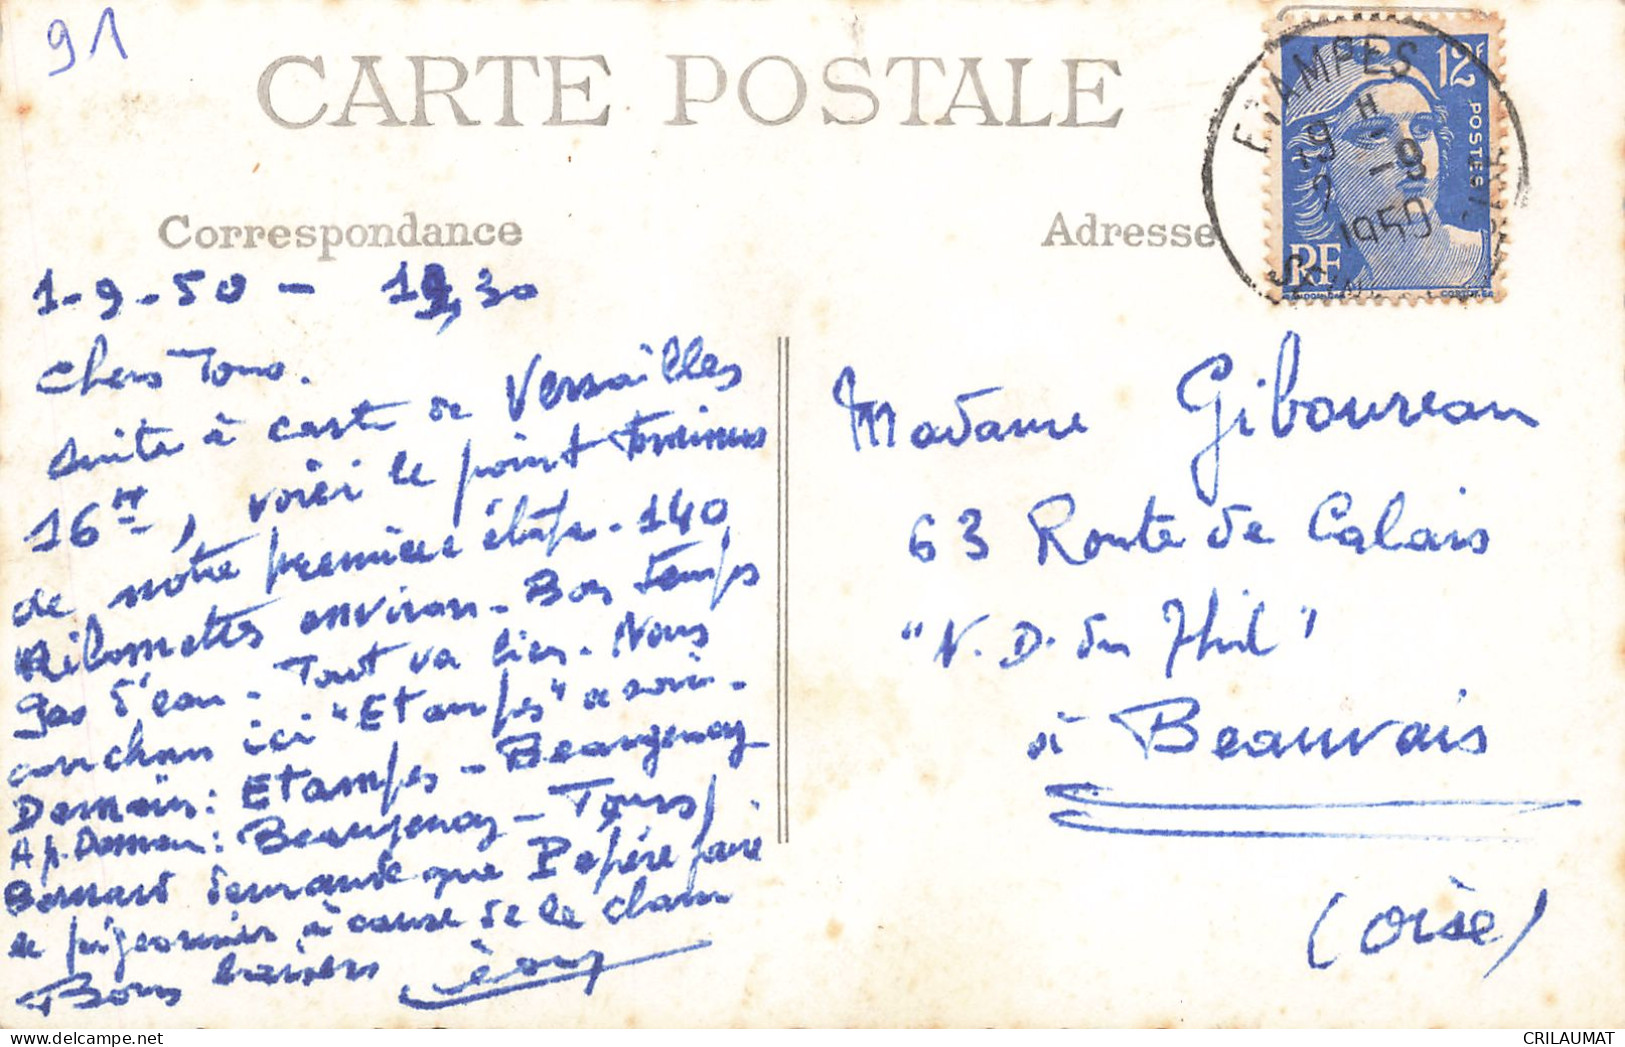 91
CARTE POSTALE
Correspondance
Adresse
ETAMPES
19 H
2 -9
1950
12F
POSTES
RF
1-9-50 - 19,30
Chers Tous.
suite à carte de Versailles
16H, voici le point terminus
de notre première étape - 140
Kilomètres environ - Bon temps
pas d'eau - Tout va bien. Nous
couchons ici "Etampes" ce soir.
Demain: Etampes - Beaugency
Ap. Demain: Beaugency - Tours/
Bernard demande que Pepère faire
le pigeonnier à cause de le
Bons baisers
Madame Giboureau
63 Route de Calais
"N. D. du Thil"
à Beauvais
(Oise)
CRILAUMAT